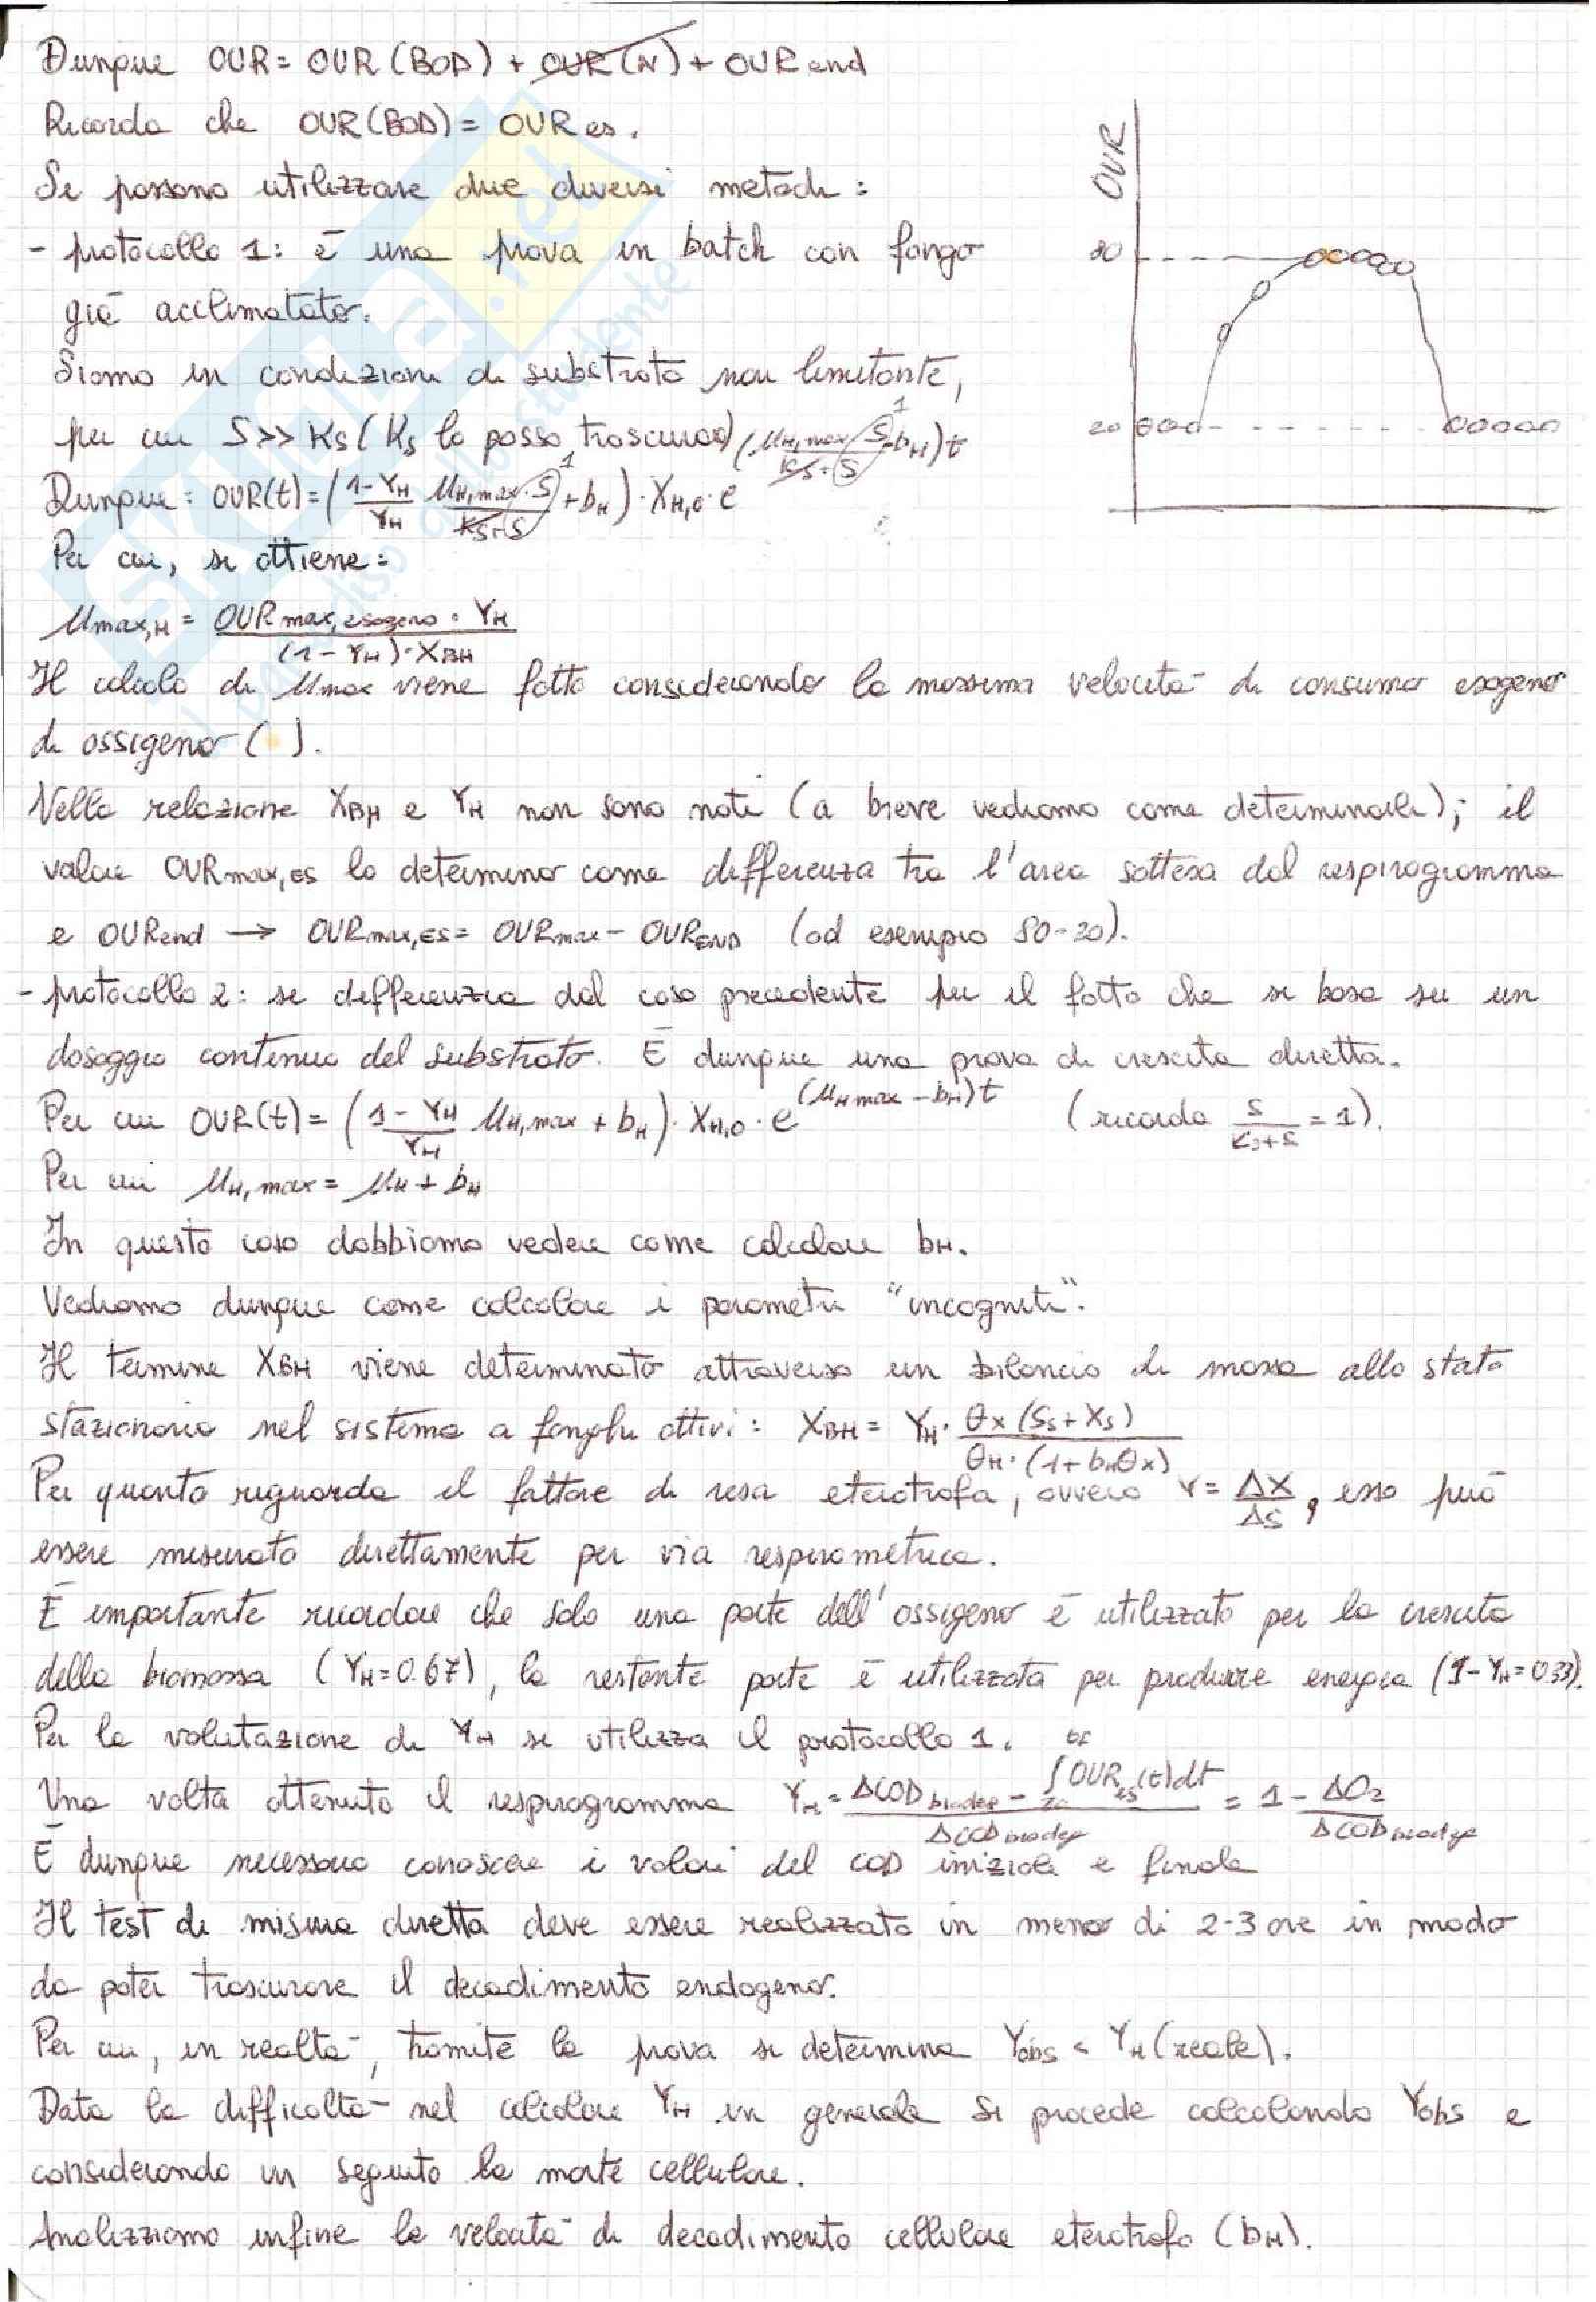 Dunque OUR = OUR (BOD) + OUR (N) + OUR end
Ricorda che OUR(BOD) = OUR es.
Si possono utilizzare due diversi metodi :
- protocollo 1: è una prova in batch con fango
già acclimatato.
Siamo in condizioni di substrato non limitante,
per cui S>>Ks ( Ks la posso trascurare)
Dunque: OUR(t) = ( (1-YH)/YH · (μH,max · S)/(Ks+S) + bH ) · XH,0 · e^((μH,max · S/(Ks+S) - bH) t)
1
1
Per cui, si ottiene:
OUR
80
20
μmax,H = (OUR max, esogeno · YH)/((1 - YH) · XBH)
Il calcolo di μmax viene fatto considerando la massima velocità di consumo esogeno
di ossigeno ( ).
Nella relazione XBH e YH non sono noti (a breve vediamo come determinarli); il
valore OURmax,es lo determino come differenza tra l'area sottesa dal respirogramma
e OURend → OURmax,ES = OURmax - OUREND (ad esempio 80-20).
- protocollo 2: si differenzia dal caso precedente per il fatto che si basa su un
dosaggio continuo del substrato. È dunque una prova di crescita diretta.
Per cui OUR(t) = ( (1 - YH)/YH μH,max + bH ) · XH,0 · e^((μH max - bH) t) (ricorda S/(Ks+S) = 1).
Per cui μH,max = μH + bH
In questo caso dobbiamo vedere come calcolare bH.
Vediamo dunque come calcolare i parametri "incogniti".
Il termine XBH viene determinato attraverso un bilancio di massa allo stato
stazionario nel sistema a fanghi attivi: XBH = YH · θx (Ss + Xs)/(θH · (1 + bH θx))
Per quanto riguarda il fattore di resa eterotrofa, ovvero Y = ΔX/ΔS, esso può
essere misurato direttamente per via respirometrica.
È importante ricordare che solo una parte dell'ossigeno è utilizzato per la crescita
della biomassa ( YH = 0.67), la restante parte è utilizzata per produrre energia (1-YH = 0.33).
Per la valutazione di YH si utilizza il protocollo 1.
Una volta ottenuto il respirogramma YH = (ΔCOD biodeg - ∫ OUR es (t) dt)/(ΔCOD biodeg) = 1 - ΔO2/(ΔCOD biodeg)
È dunque necessario conoscere i valori del COD iniziale e finale
Il test di misura diretta deve essere realizzato in meno di 2-3 ore in modo
da poter trascurare il decadimento endogeno.
Per cui, in realtà, tramite la prova si determina Yobs < YH (reale).
Data la difficoltà nel calcolare YH in generale si procede calcolando Yobs e
considerando in seguito la morte cellulare.
Analizziamo infine la velocità di decadimento cellulare eterotrofa (bH).